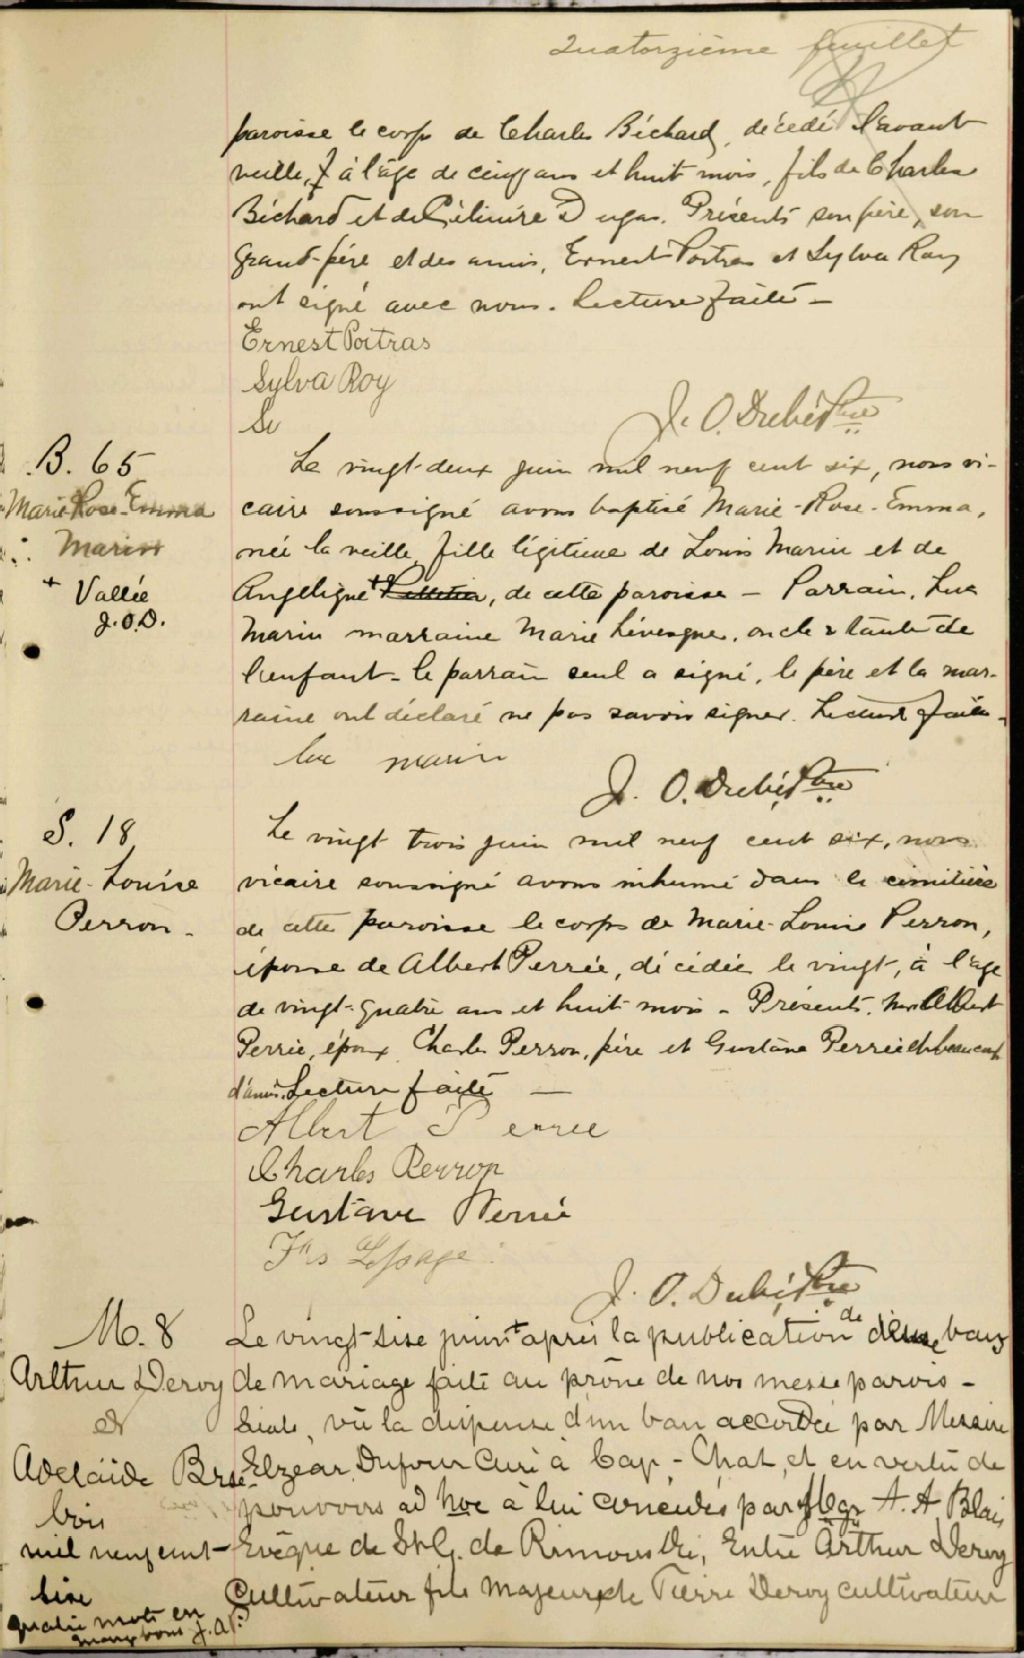 Quatorzième feuillet
paroisse le corps de Charles Béchard, décédé l'avant
veille, à l'âge de cinq ans et huit mois, fils de Charles
Béchard et de Célinire Dugas. Présents son père, son
grand-père et des amis, Ernest Poitras et Sylva Roy
ont signé avec nous. Lecture faite -
Ernest Poitras
Sylva Roy
J. O. Drubé Ptre
B. 65
Marie-Rose-Emma
Marin
+ Vallée
J.O.D.
Le vingt-deux juin mil neuf cent six, nous vi-
caire soussigné avons baptisé Marie-Rose-Emma,
née la veille, fille légitime de Louis Marin et de
Angélique + Pelletier, de cette paroisse - Parrain, Luc
Marin marraine Marie Lévesque, oncle & tante de
l'enfant - le parrain seul a signé, le père et la mar-
raine ont déclaré ne pas savoir signer. Lecture faite -
luc marin
J. O. Drubé Ptre
S. 18
Marie-Louise
Perron -
Le vingt trois juin mil neuf cent six, nous
vicaire soussigné avons inhumé dans le cimetière
de cette paroisse le corps de Marie-Louise Perron,
épouse de Albert Perrée, décédée le vingt, à l'âge
de vingt-quatre ans et huit mois - Présents, Albert
Perrée, époux, Charles Perron, père et Gustave Perrée et beaucoup
d'amis. Lecture faite -
Albert Perree
Charles Perron
Gustave Perrée
Frs Lepage
J. O. Drubé Ptre
M. 8
Arthur Deroy
et
Adelaide Brise
bois
mil neuf cent
sise
quatre mots en
marge bons J.A.P.
Le vingt-sise juin + après la publication de deux bans
de mariage faite au prône de nos messe parois-
siale, vû la dispense d'un ban accordée par Messire
Elzear Dufour Curé à Cap-Chat, et en vertu de
pouvoirs ad hoc à lui concédés par Mgr A. A Blais
Evêque de St G. de Rimouski, Entre Arthur Deroy
Cultivateur fils majeur de Pierre Deroy cultivateur